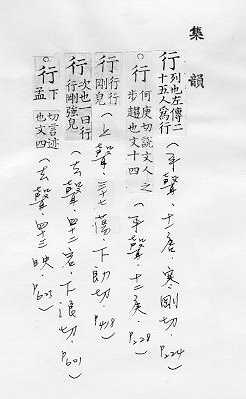 集韻
行列也左傳二十五人爲行(平聲.十一唐.寒剛切.P224)
○行何庚切說文人之步趨也文十四(平聲.十二庚.P228)
行行行剛皃(上聲.三十七蕩.下朗切.P418)
行次也一曰行行剛強皃(去聲.四十二宕.下浪切.P601)
○行下孟切言迹也文四(去聲.四十三映.)